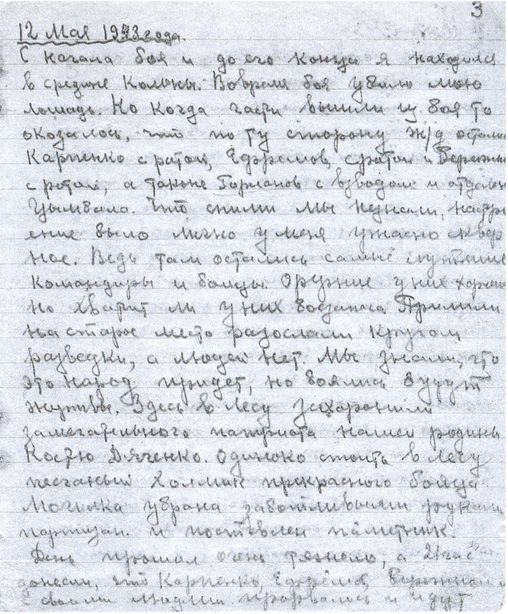 3
12 Мая 1943 года.
С начала боя и до его конца я находился
в средине Колоны. Вовремя боя убило мою
лошадь. Но когда части вышли из боя то
оказалось, что по ту сторону ж/д остали
Карпенко с ротой, Ефремов с ротой и Бережно
с ротой, а также Горланов с взводом и отделен
Цымбала. Что с ними мы не знали, настро
ение было лично у меня ужасно сквер
ное. Ведь там остались самые лутшие
командиры и бойцы. Оружие у них хорош
но хватит ли у них боезапаса. Пришли
на старое место разослали кругом
разведки, а людей нет. Мы знали, что
это народ придет, но боялись будут
жертвы. Здесь в лесу захоронили
замечательного патриота нашей родины
Костю Дяченко. Одиноко стоить в лесу
песчаный холмик прекрасного бойца
могилка убрана заботливыми руками
партизан. и поставлен памятник.
День прошол очень тяжело, а 21 час
донесли, что Карпенко, Ефремов Бережной
с своими людьми прорвались и идут